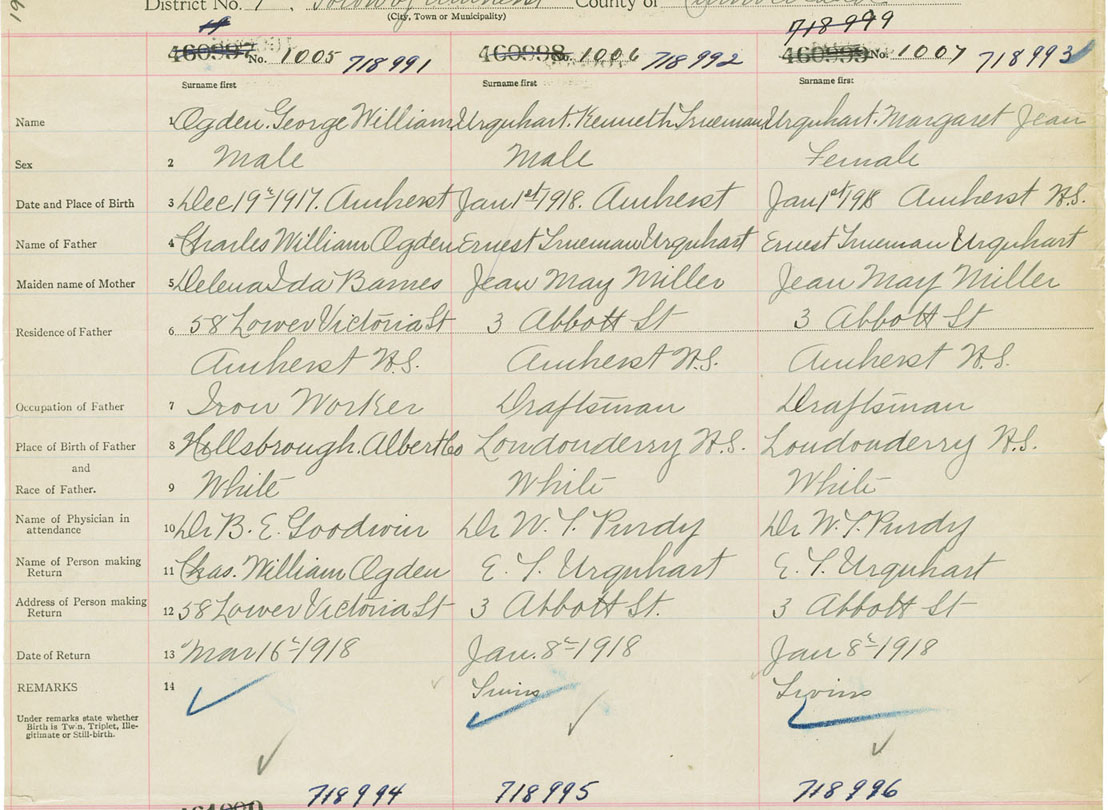 19
District No. 1, Town of Amherst County of Cumberland
(City, Town or Municipality)
718999
460997 No. 1005 718991 460998 No. 1006 718992 460999 No. 1007 718993
Surname first Surname first Surname first
Name 1 Ogden. George William Urquhart. Kenneth Trueman Urquhart. Margaret Jean
Sex 2 Male Male Female
Date and Place of Birth 3 Dec 19th 1917. Amherst Jan 1st 1918. Amherst Jan 1st 1918 Amherst N.S.
Name of Father 4 Charles William Ogden Ernest Trueman Urquhart Ernest Trueman Urquhart
Maiden name of Mother 5 Delena Ida Barnes Jean May Miller Jean May Miller
Residence of Father 6 58 Lower Victoria St 3 Abbott St 3 Abbott St
Amherst N.S. Amherst N.S. Amherst N.S.
Occupation of Father 7 Iron Worker Draftsman Draftsman
Place of Birth of Father 8 Hillsbrough. Albert Co Londonderry N.S. Londonderry N.S.
and
Race of Father. 9 White White White
Name of Physician in attendance 10 Dr B. E. Goodwin Dr W. T. Purdy Dr W. T. Purdy
Name of Person making Return 11 Chas. William Ogden E. T. Urquhart E. T. Urquhart
Address of Person making Return 12 58 Lower Victoria St 3 Abbott St. 3 Abbott St
Date of Return 13 Mar 16th 1918 Jan. 8th 1918 Jan 8th 1918
REMARKS 14 Twins Twins
Under remarks state whether
Birth is Twin, Triplet, Ille-
gitimate or Still-birth.
718994 718995 718996